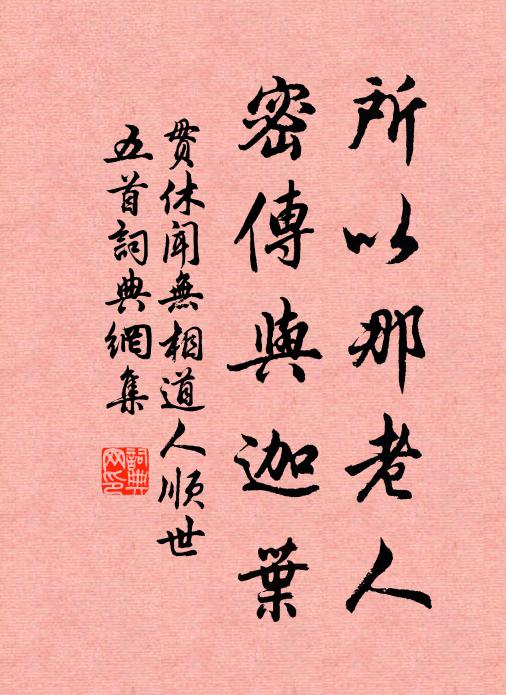 所以那老人
密傳與迦葉
貫休聞無相道人順世
五首詞典網集
詞典
网印